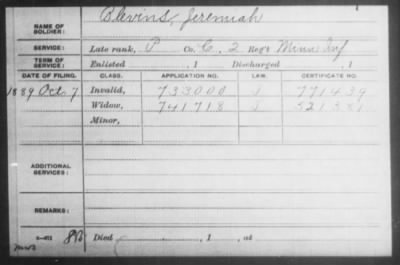 Blevins, Jeremiah
NAME OF
SOLDIER:
SERVICE: Late rank, P Co. C, 2 Reg't Minn Inf
TERM OF
SERVICE: Enlisted , 1 Discharged , 1
DATE OF FILING. CLASS. APPLICATION NO. LAW. CERTIFICATE NO.
1889 Oct. 7 Invalid, 733000 J 771439
Widow, 741718 J 521381
Minor,
ADDITIONAL
SERVICES:
REMARKS:
Died , 1 , at